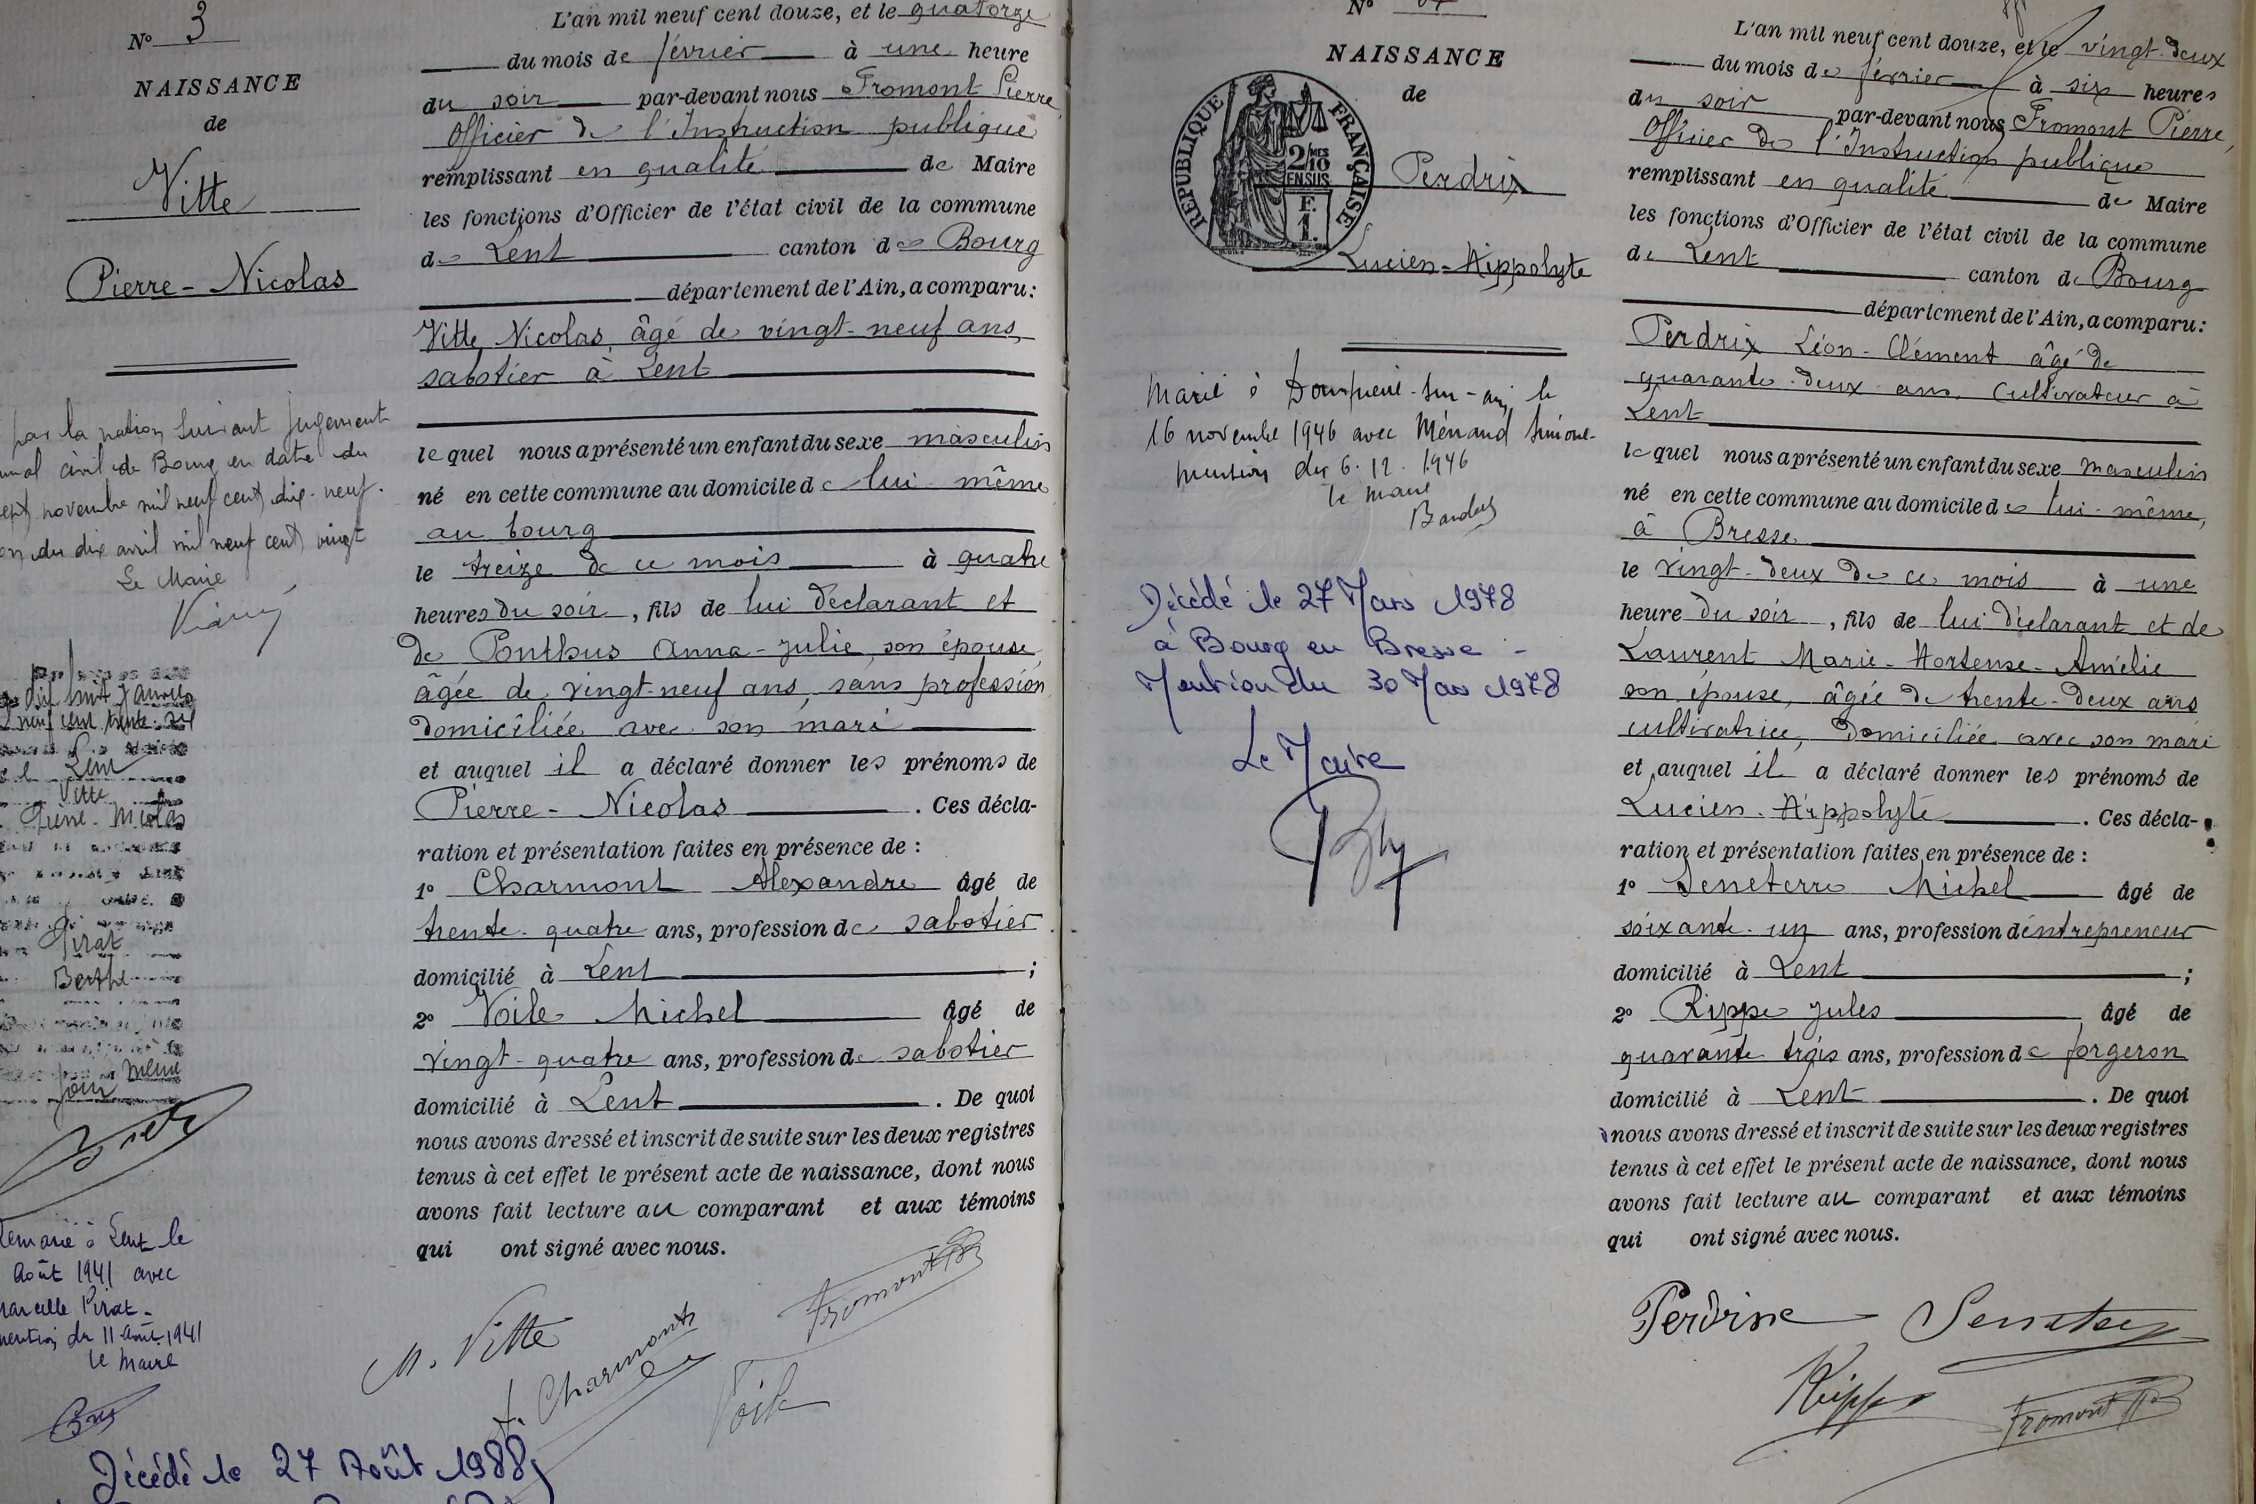 N° 3
NAISSANCE
de
Vitte
Pierre-Nicolas
par la nation suivant jugement
civil de Bourg en date du
novembre mil neuf cent dix-neuf.
du dix avril mil neuf cent vingt
Le Maire
dix huit janvier
neuf cent trente six
Lent
Vitte
Pierre-Nicolas
Pirat
Berthe
même
jour
Remarié à Lent le
Août 1941 avec
Marcelle Pirat-
mention du 11 août 1941
le Maire
Décédé le 27 Août 1988,
L'an mil neuf cent douze, et le quatorze
du mois de février à une heure
du soir par-devant nous Fromont Pierre
Officier de l'Instruction publique
remplissant en qualité de Maire
les fonctions d'Officier de l'état civil de la commune
de Lent canton de Bourg
département de l'Ain, a comparu:
Vitte Nicolas, âgé de vingt-neuf ans,
sabotier à Lent
lequel nous a présenté un enfant du sexe masculin
né en cette commune au domicile de lui-même
au bourg
le treize de ce mois à quatre
heures du soir, fils de lui déclarant et
de Ponthus Anna-Julie, son épouse,
âgée de vingt-neuf ans, sans profession
domiciliée avec son mari
et auquel il a déclaré donner les prénoms de
Pierre-Nicolas. Ces décla-
ration et présentation faites en présence de :
1° Charmont Alexandre âgé de
trente-quatre ans, profession de sabotier
domicilié à Lent ;
2° Voile Michel âgé de
vingt-quatre ans, profession de sabotier
domicilié à Lent. De quoi
nous avons dressé et inscrit de suite sur les deux registres
tenus à cet effet le présent acte de naissance, dont nous
avons fait lecture au comparant et aux témoins
qui ont signé avec nous.
N. Vitte
Charmont
Voile
Fromont
N°
NAISSANCE
de
RÉPUBLIQUE FRANÇAISE
2/10MES
EN SUS
F.
1.
Perdrix
Lucien-Hippolyte
Marié à Dompierre-sur-Ain le
16 novembre 1946 avec Ménand Simone-
mention du 6.12.1946
le maire
Décédé le 27 Mars 1978
à Bourg en Bresse -
Mention du 30 Mars 1978
Le Maire
L'an mil neuf cent douze, et le vingt-deux
du mois de février à six heures
du soir par-devant nous Fromont Pierre,
Officier de l'Instruction publique
remplissant en qualité de Maire
les fonctions d'Officier de l'état civil de la commune
de Lent canton de Bourg
département de l'Ain, a comparu:
Perdrix Léon-Clément âgé de
quarante-deux ans, cultivateur à
Lent
lequel nous a présenté un enfant du sexe masculin
né en cette commune au domicile de lui-même,
à Bresse
le vingt-deux de ce mois à une
heure du soir, fils de lui déclarant et de
Laurent Marie-Hortense-Amélie
son épouse, âgée de trente-deux ans
cultivatrice, domiciliée avec son mari
et auquel il a déclaré donner les prénoms de
Lucien-Hippolyte. Ces décla-
ration et présentation faites en présence de :
1° Seneterre Michel âgé de
soixante-un ans, profession d'entrepreneur
domicilié à Lent ;
2° Rippe Jules âgé de
quarante trois ans, profession de forgeron
domicilié à Lent. De quoi
nous avons dressé et inscrit de suite sur les deux registres
tenus à cet effet le présent acte de naissance, dont nous
avons fait lecture au comparant et aux témoins
qui ont signé avec nous.
Perdrix
Rippe
Fromont